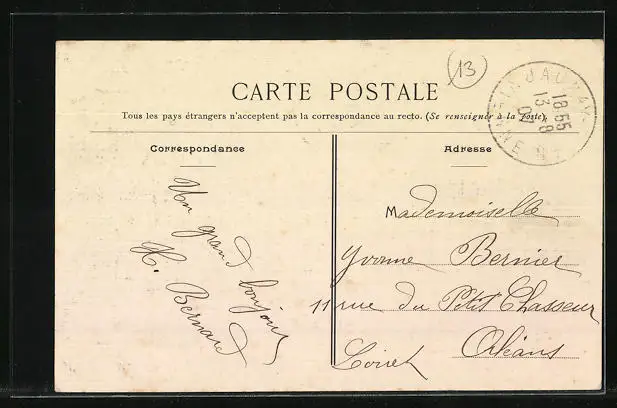 13
CARTE POSTALE
Tous les pays étrangers n'acceptent pas la correspondance au recto. (Se renseigner à la poste)
Correspondance
Un grand bonjour
H. Bernard
Adresse
Mademoiselle
Yvonne Bernier
11 rue du Petit Chasseur
Orléans
Loiret
18 55
13 - 8
07